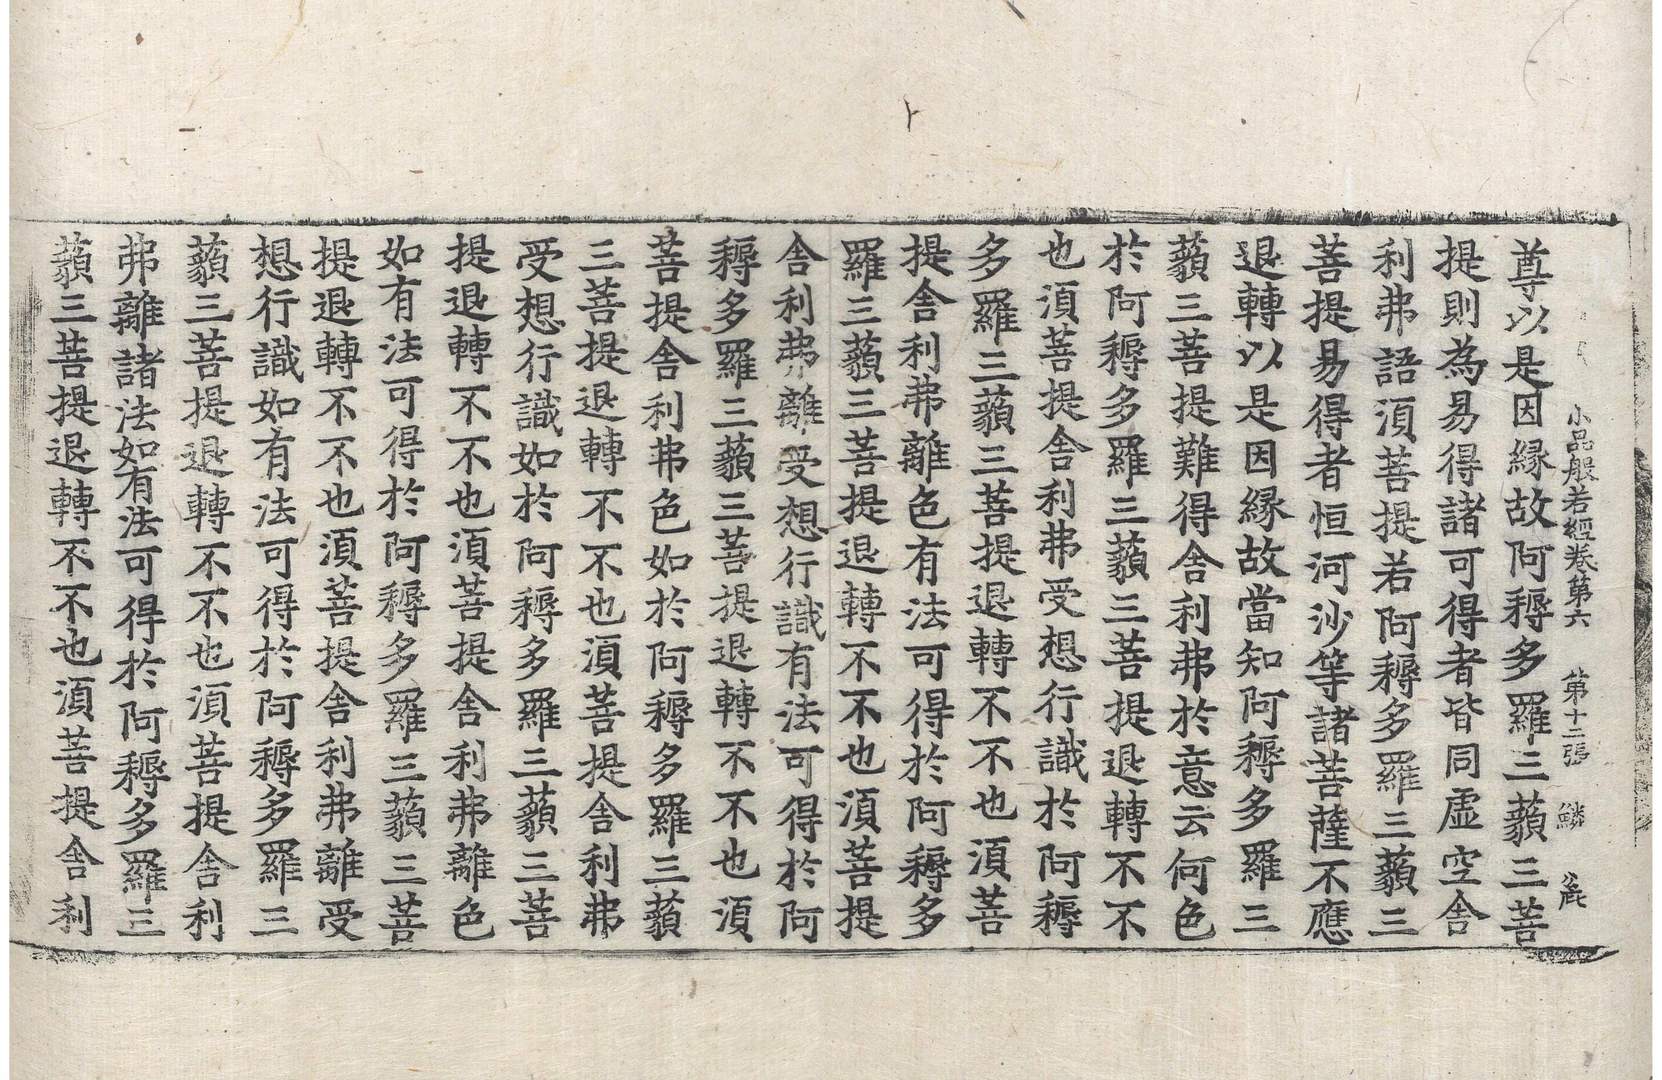 小品般若經卷第六 第十二張 鱗
尊以是因縁故阿耨多羅三藐三菩
提則為易得諸可得者皆同虛空舍
利弗語湏菩提若阿耨多羅三藐三
菩提易得者恒河沙等諸菩薩不應
退轉以是因縁故當知阿耨多羅三
藐三菩提難得舍利弗於意云何色
於阿耨多羅三藐三菩提退轉不不
也湏菩提舍利弗受想行識於阿耨
多羅三藐三菩提退轉不不也湏菩
提舍利弗離色有法可得於阿耨多
羅三藐三菩提退轉不不也湏菩提
舍利弗離受想行識有法可得於阿
耨多羅三藐三菩提退轉不不也湏
菩提舍利弗色如於阿耨多羅三藐
三菩提退轉不不也湏菩提舍利弗
受想行識如於阿耨多羅三藐三菩
提退轉不不也湏菩提舍利弗離色
如有法可得於阿耨多羅三藐三菩
提退轉不不也湏菩提舍利弗離受
想行識如有法可得於阿耨多羅三
藐三菩提退轉不不也湏菩提舍利
弗離諸法如有法可得於阿耨多羅三
藐三菩提退轉不不也湏菩提舍利